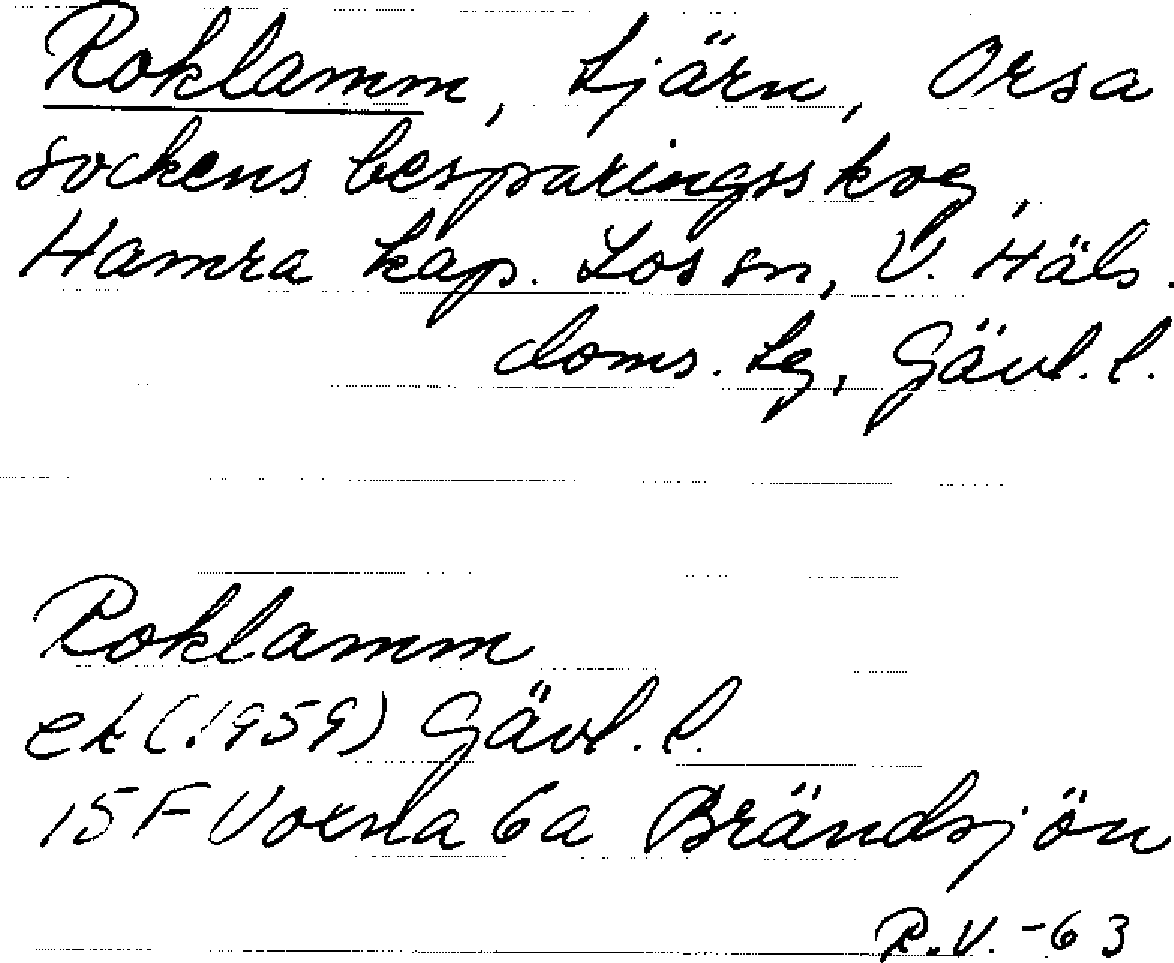 Roklamm, tjärn, Orsa
sockens besparingsskog,
Hamra kap. Los sn, V. Häls.
doms. lg, Gävl. l.
Roklamm
ek (1959) Gävl. l.
15F Voxna 6a Brändsjön
R.V. -63